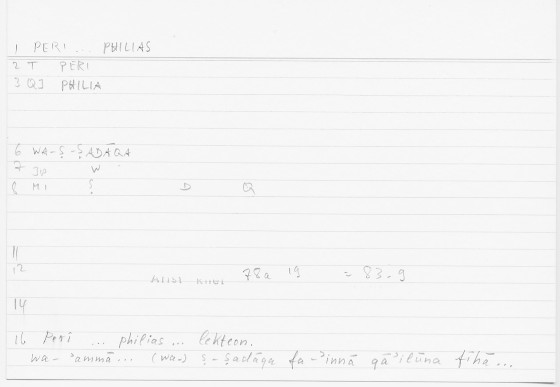 1 PERI ... PHILIAS
2 T PERI
3 QI PHILIA
6 WA-Ṣ-ṢADĀQA
7 W
8 MI Ṣ D Q
11
12 78a 19 = 83.9
14
16 Peri ... philias ... lekteon.
wa-ʾammā ... (wa-) ṣ-ṣadāqa fa-ʾinnā qāʾilūna fīhā ...